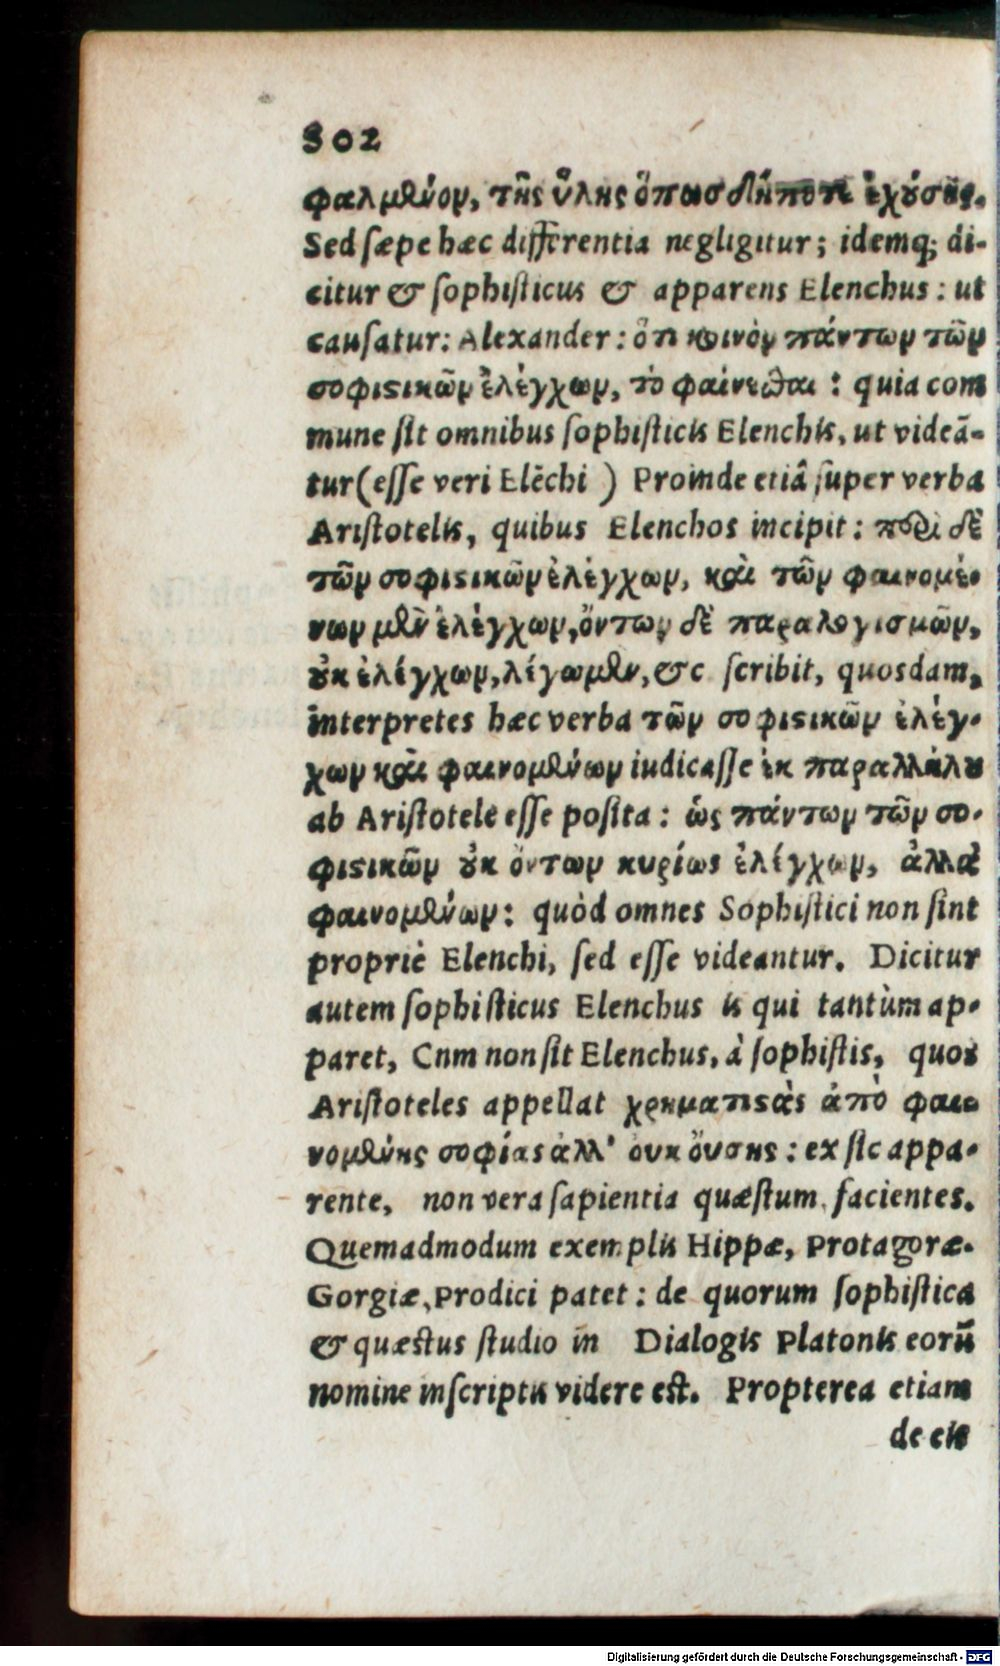 302
φαλμένον, τῆς ὕλης ὅπωσδήποτε ἐχύσης.
Sed sæpe hæc differentia negligitur; idemq; di-
citur & sophisticus & apparens Elenchus: ut
causatur: Alexander: ὅτι κοινὸν πάντων τῶν
σοφιστικῶν ἐλέγχων, τὸ φαίνεσθαι: quia com
mune sit omnibus sophisticis Elenchis, ut videā-
tur (esse veri Elēchi ) Proinde etiā super verba
Aristotelis, quibus Elenchos incipit: περὶ δὲ
τῶν σοφιστικῶν ἐλέγχων, καὶ τῶν φαινομέ-
νων μὲν ἐλέγχων, ὄντων δὲ παραλογισμῶν,
οὐκ ἐλέγχων, λέγωμεν, &c scribit, quosdam,
interpretes hæc verba τῶν σοφιστικῶν ἐλέγ-
χων καὶ φαινομένων iudicasse ἐκ παραλλήλου
ab Aristotele esse posita: ὡς πάντων τῶν σο-
φιστικῶν οὐκ ὄντων κυρίως ἐλέγχων, ἀλλὰ
φαινομένων: quòd omnes Sophistici non sint
propriè Elenchi, sed esse videantur. Dicitur
autem sophisticus Elenchus is qui tantùm ap-
paret, Cnm non sit Elenchus, à sophistis, quos
Aristoteles appellat χρηματιστὰς ἀπὸ φαι-
νομένης σοφίας ἀλλ' οὐκ ὄυσης: ex sic appa-
rente, non vera sapientia quæstum facientes.
Quemadmodum exemplis Hippæ, Protagoræ.
Gorgiæ, Prodici patet: de quorum sophistica
& quæstus studio in Dialogis Platonis eorū
nomine inscriptis videre est. Propterea etiam
de eis
Digitalisierung gefördert durch die Deutsche Forschungsgemeinschaft - DFG